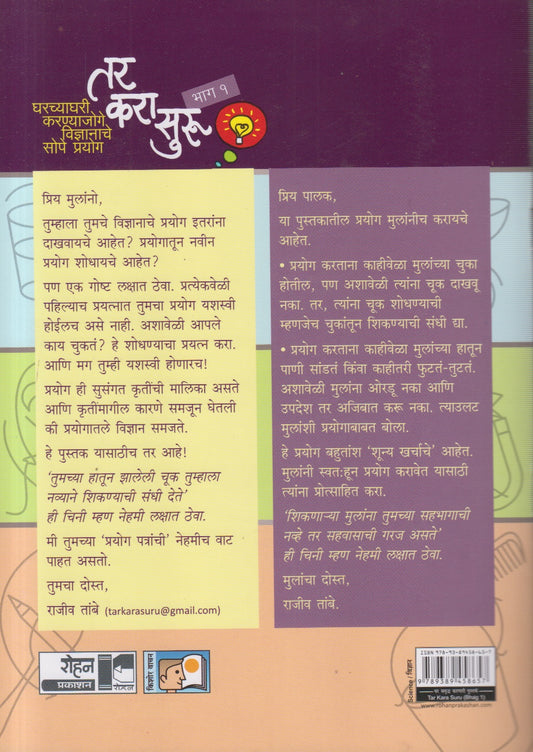 तर
करा
सुरू
भाग १
घरच्याघरी
करण्याजोगे
विज्ञानाचे
सोपे प्रयोग
प्रिय मुलांनो,
तुम्हाला तुमचे विज्ञानाचे प्रयोग इतरांना
दाखवायचे आहेत? प्रयोगातून नवीन
प्रयोग शोधायचे आहेत?
पण एक गोष्ट लक्षात ठेवा. प्रत्येकवेळी
पहिल्याच प्रयत्नात तुमचा प्रयोग यशस्वी
होईलच असे नाही. अशावेळी आपले
काय चुकतं? हे शोधण्याचा प्रयत्न करा.
आणि मग तुम्ही यशस्वी होणारच!
प्रयोग ही सुसंगत कृतींची मालिका असते
आणि कृतींमागील कारणे समजून घेतली
की प्रयोगातले विज्ञान समजते.
हे पुस्तक यासाठीच तर आहे!
'तुमच्या हातून झालेली चूक तुम्हाला
नव्याने शिकण्याची संधी देते'
ही चिनी म्हण नेहमी लक्षात ठेवा.
मी तुमच्या 'प्रयोग पत्रांची' नेहमीच वाट
पाहत असतो.
तुमचा दोस्त,
राजीव तांबे (tarkarasuru@gmail.com)
प्रिय पालक,
या पुस्तकातील प्रयोग मुलांनीच करायचे
आहेत.
• प्रयोग करताना काहीवेळा मुलांच्या चुका
होतील, पण अशावेळी त्यांना चूक दाखवू
नका. तर, त्यांना चूक शोधण्याची
म्हणजेच चुकांतून शिकण्याची संधी द्या.
• प्रयोग करताना काहीवेळा मुलांच्या हातून
पाणी सांडतं किंवा काहीतरी फुटतं-तुटतं.
अशावेळी मुलांना ओरडू नका आणि
उपदेश तर अजिबात करू नका. त्याउलट
मुलांशी प्रयोगाबाबत बोला.
हे प्रयोग बहुतांश 'शून्य खर्चाचे' आहेत.
मुलांनी स्वत:हून प्रयोग करावेत यासाठी
त्यांना प्रोत्साहित करा.
'शिकणाऱ्या मुलांना तुमच्या सहभागाची
नव्हे तर सहवासाची गरज असते'
ही चिनी म्हण नेहमी लक्षात ठेवा.
मुलांचा दोस्त,
राजीव तांबे.
रोहन
प्रकाशन
रोहन
किशोर वाचन
Science / विज्ञान
ISBN 978-93-89458-65-7
9789389458657
Tar Kara Suru (Bhag 1)
www.rohanprakashan.com